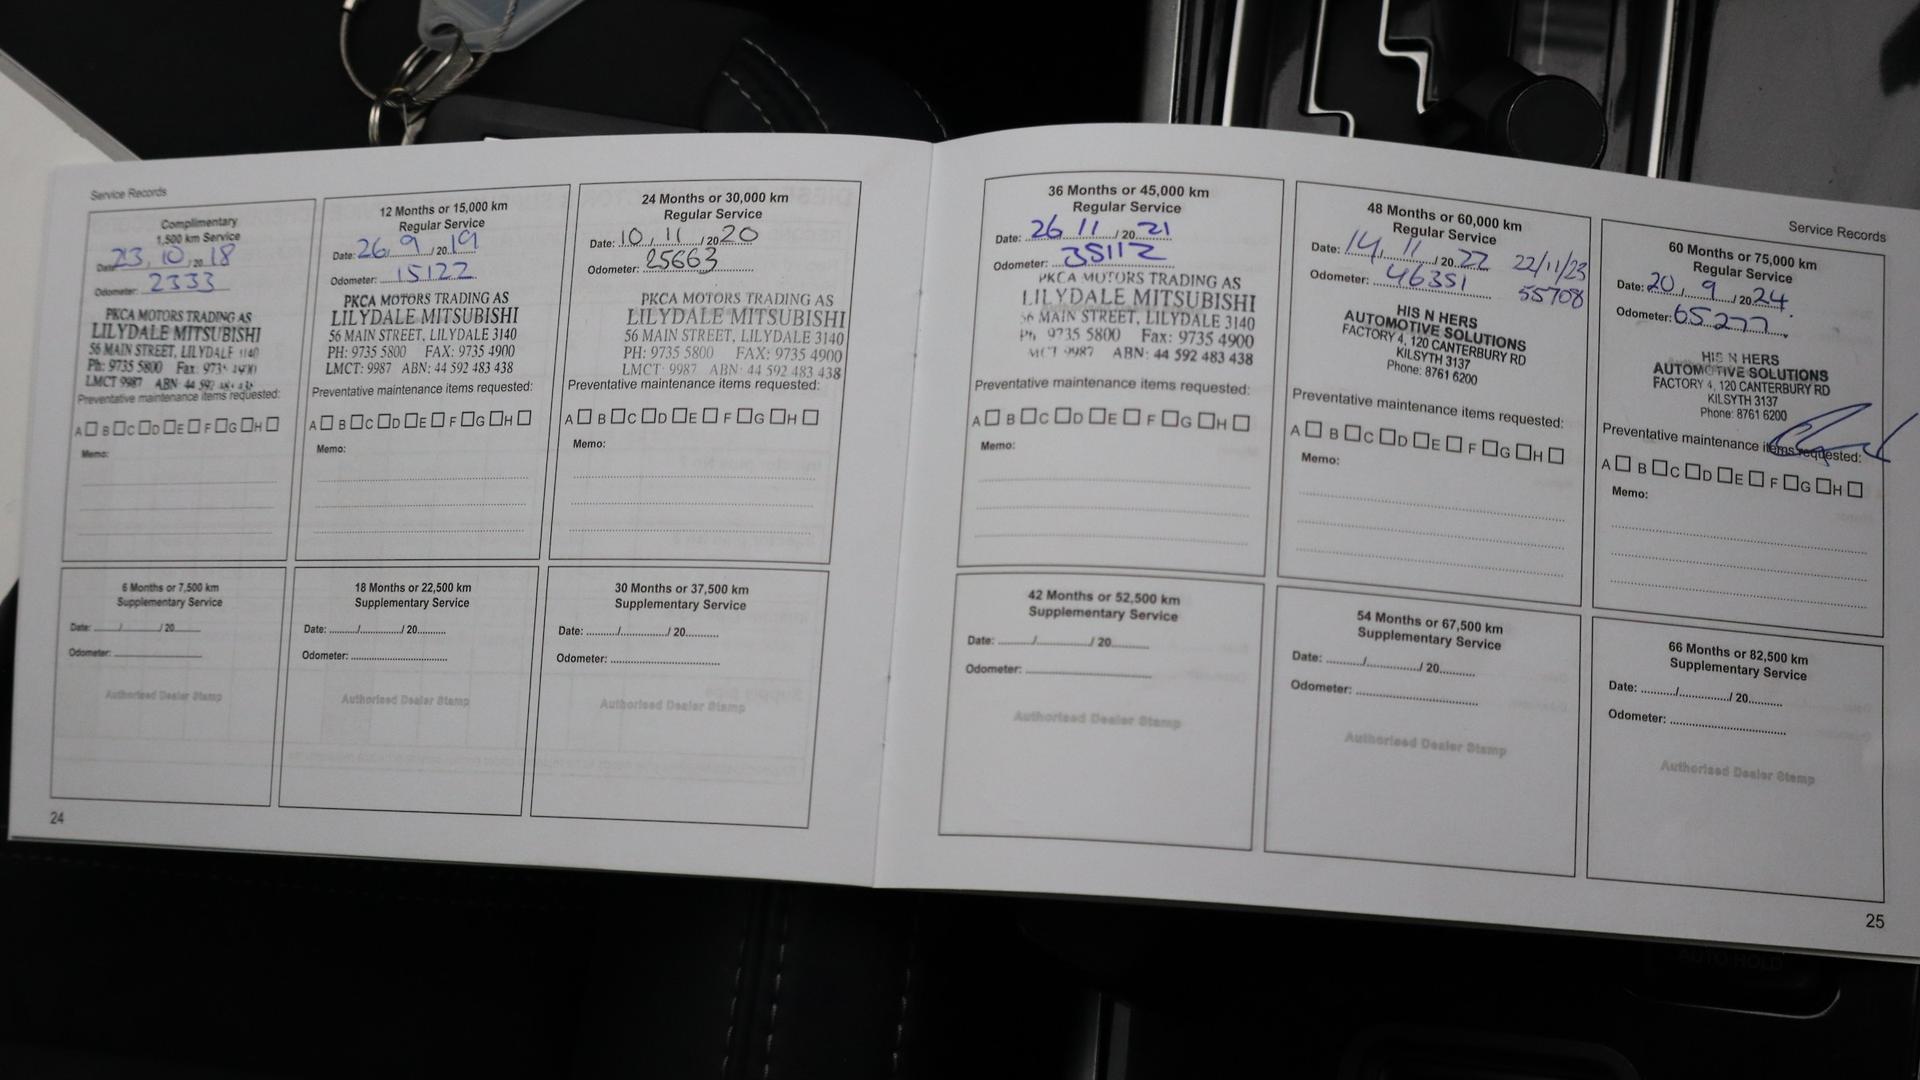 Service Records
Complimentary
1,500 km Service
Date 23, 10, 20 18
Odometer: 2333
PKCA MOTORS TRADING AS
LILYDALE MITSUBISHI
56 MAIN STREET, LILYDALE 3140
Ph: 9735 5800 Fax: 9735 4900
LMCT 9987 ABN: 44 592 483 438
Preventative maintenance items requested:
A B C D E F G H
Memo:
12 Months or 15,000 km
Regular Service
Date: 26, 9 / 20 19
Odometer: 15122
PKCA MOTORS TRADING AS
LILYDALE MITSUBISHI
56 MAIN STREET, LILYDALE 3140
PH: 9735 5800 FAX: 9735 4900
LMCT: 9987 ABN: 44 592 483 438
Preventative maintenance items requested:
A B C D E F G H
Memo:
24 Months or 30,000 km
Regular Service
Date: 10, 11 / 20 20
Odometer: 25663
PKCA MOTORS TRADING AS
LILYDALE MITSUBISHI
56 MAIN STREET, LILYDALE 3140
PH: 9735 5800 FAX: 9735 4900
LMCT: 9987 ABN: 44 592 483 438
Preventative maintenance items requested:
A B C D E F G H
Memo:
6 Months or 7,500 km
Supplementary Service
Date: ....../............/ 20........
Odometer: ........................
Authorised Dealer Stamp
18 Months or 22,500 km
Supplementary Service
Date: ......../............./ 20..........
Odometer: ...............................
Authorised Dealer Stamp
30 Months or 37,500 km
Supplementary Service
Date: .........../................/ 20...........
Odometer: ....................................
Authorised Dealer Stamp
24
36 Months or 45,000 km
Regular Service
Date: 26 11 / 20 21
Odometer: 35112
PKCA MOTORS TRADING AS
LILYDALE MITSUBISHI
56 MAIN STREET, LILYDALE 3140
Ph: 9735 5800 Fax: 9735 4900
MCT 9987 ABN: 44 592 483 438
Preventative maintenance items requested:
A B C D E F G H
Memo:
48 Months or 60,000 km
Regular Service
Date: 14, 11 / 20 22 22/11/23
Odometer: 46351 55708
HIS N HERS
AUTOMOTIVE SOLUTIONS
FACTORY 4, 120 CANTERBURY RD
KILSYTH 3137
Phone: 8761 6200
Preventative maintenance items requested:
A B C D E F G H
Memo:
Service Records
60 Months or 75,000 km
Regular Service
Date: 20, 9 / 20 24.
Odometer: 65277
HIS N HERS
AUTOMOTIVE SOLUTIONS
FACTORY 4, 120 CANTERBURY RD
KILSYTH 3137
Phone: 8761 6200
Preventative maintenance items requested:
A B C D E F G H
Memo:
42 Months or 52,500 km
Supplementary Service
Date: ........../................/ 20..........
Odometer: ...................................
Authorised Dealer Stamp
54 Months or 67,500 km
Supplementary Service
Date: ........../................/ 20..........
Odometer: ...................................
Authorised Dealer Stamp
66 Months or 82,500 km
Supplementary Service
Date: ........../................/ 20..........
Odometer: ...................................
Authorised Dealer Stamp
25
AUTO HOLD